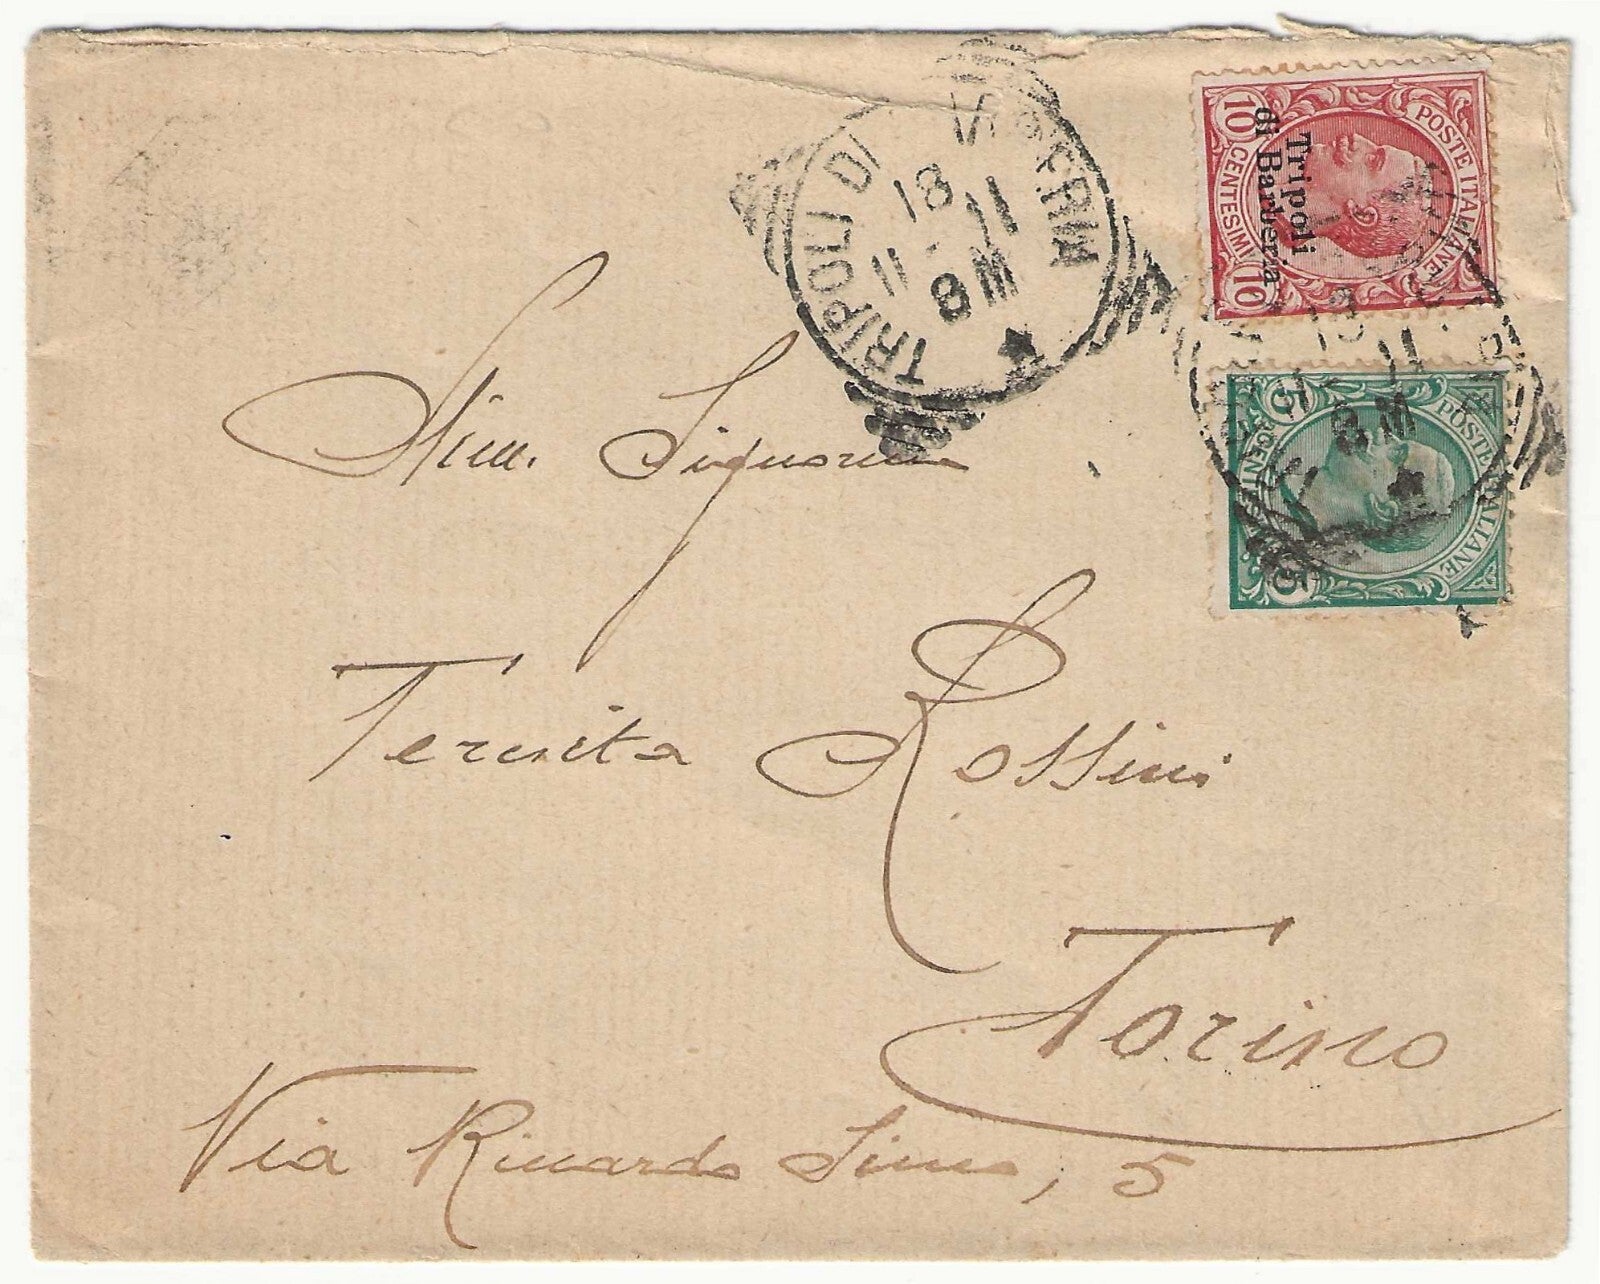 TRIPOLI DI BARBERIA
18
11 11
8 M
POSTE ITALIANE
10 CENTESIMI 10
Tripoli
di Barberia
POSTE ITALIANE
5 CENTESIMI 5
18
11 11
8 M
Signorina
Teresita Rossini
Torino
Via Riccardo Sineo, 5